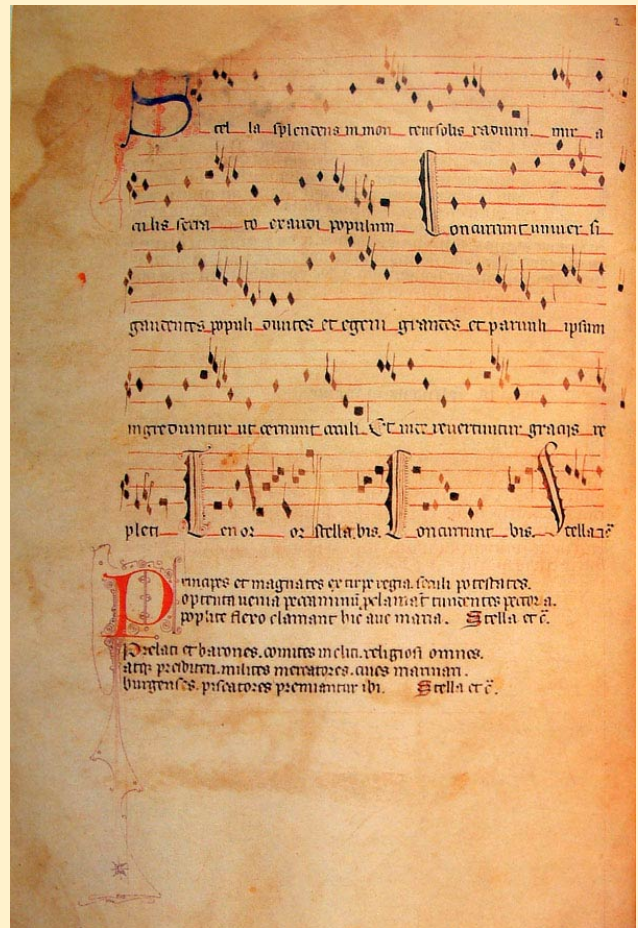 2
Stel la splendens in mon te ut solis radium mir a
culis serra to exaudi populum Concurrunt univer si
gaudentes populi divites et egeni grandes et parvuli ipsum
ingrediuntur ut cernunt oculi Et inde revertuntur gracijs re
pleti Tenor or stella bis Concurrunt bis Stella
Principes et magnates ex stirpe regia seculi potestates
optenta venia peccaminum pclamant tundentes pectora.
poplite flexo clamant hic ave maria. Stella et c̃.
Prelati et barones. comites incliti. religiosi omnes.
atq; presbiteri. milites mercatores. cives marinari.
burgenses. piscatores premiantur ibi. Stella et c̃.